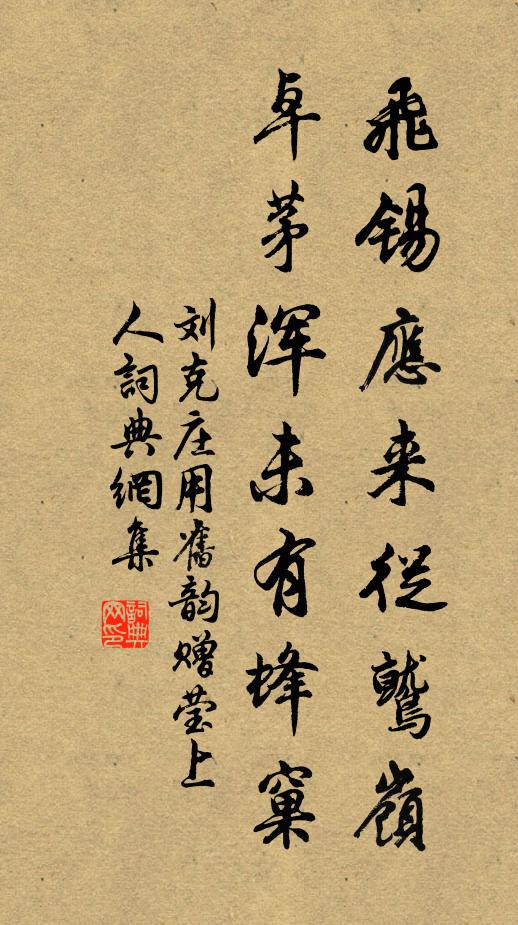 飛锡應来從鷲嶺
卓茅浑未有蜂窠
刘克庄用舊韵赠莹上
人詞典網集
詞典网印